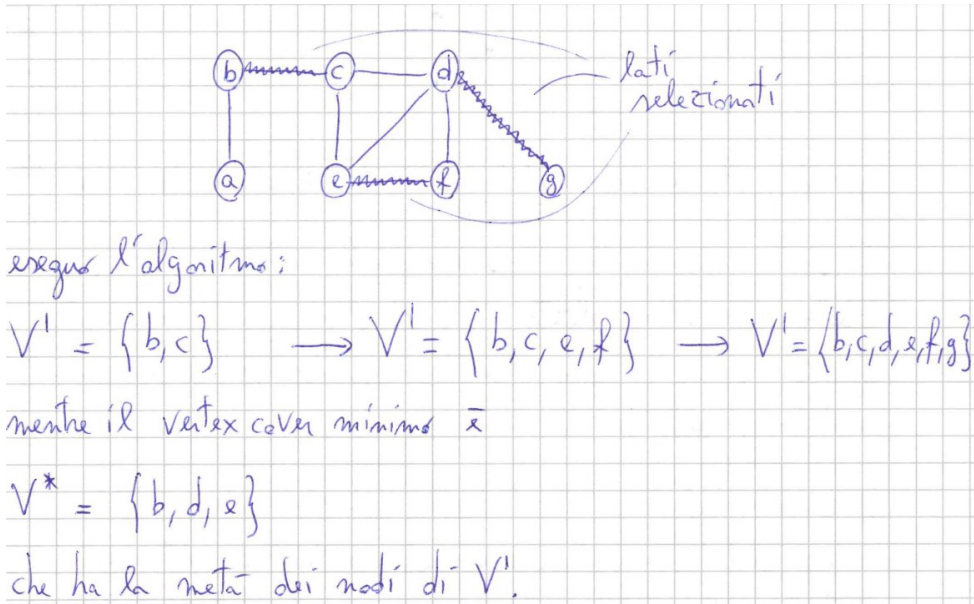 b c d lati
selezionati
a e f g
eseguo l'algoritmo:
V' = {b,c} → V' = {b, c, e, f} → V' = {b,c,d,e,f,g}
mentre il vertex cover minimo è
V* = {b, d, e}
che ha la metà dei nodi di V'.